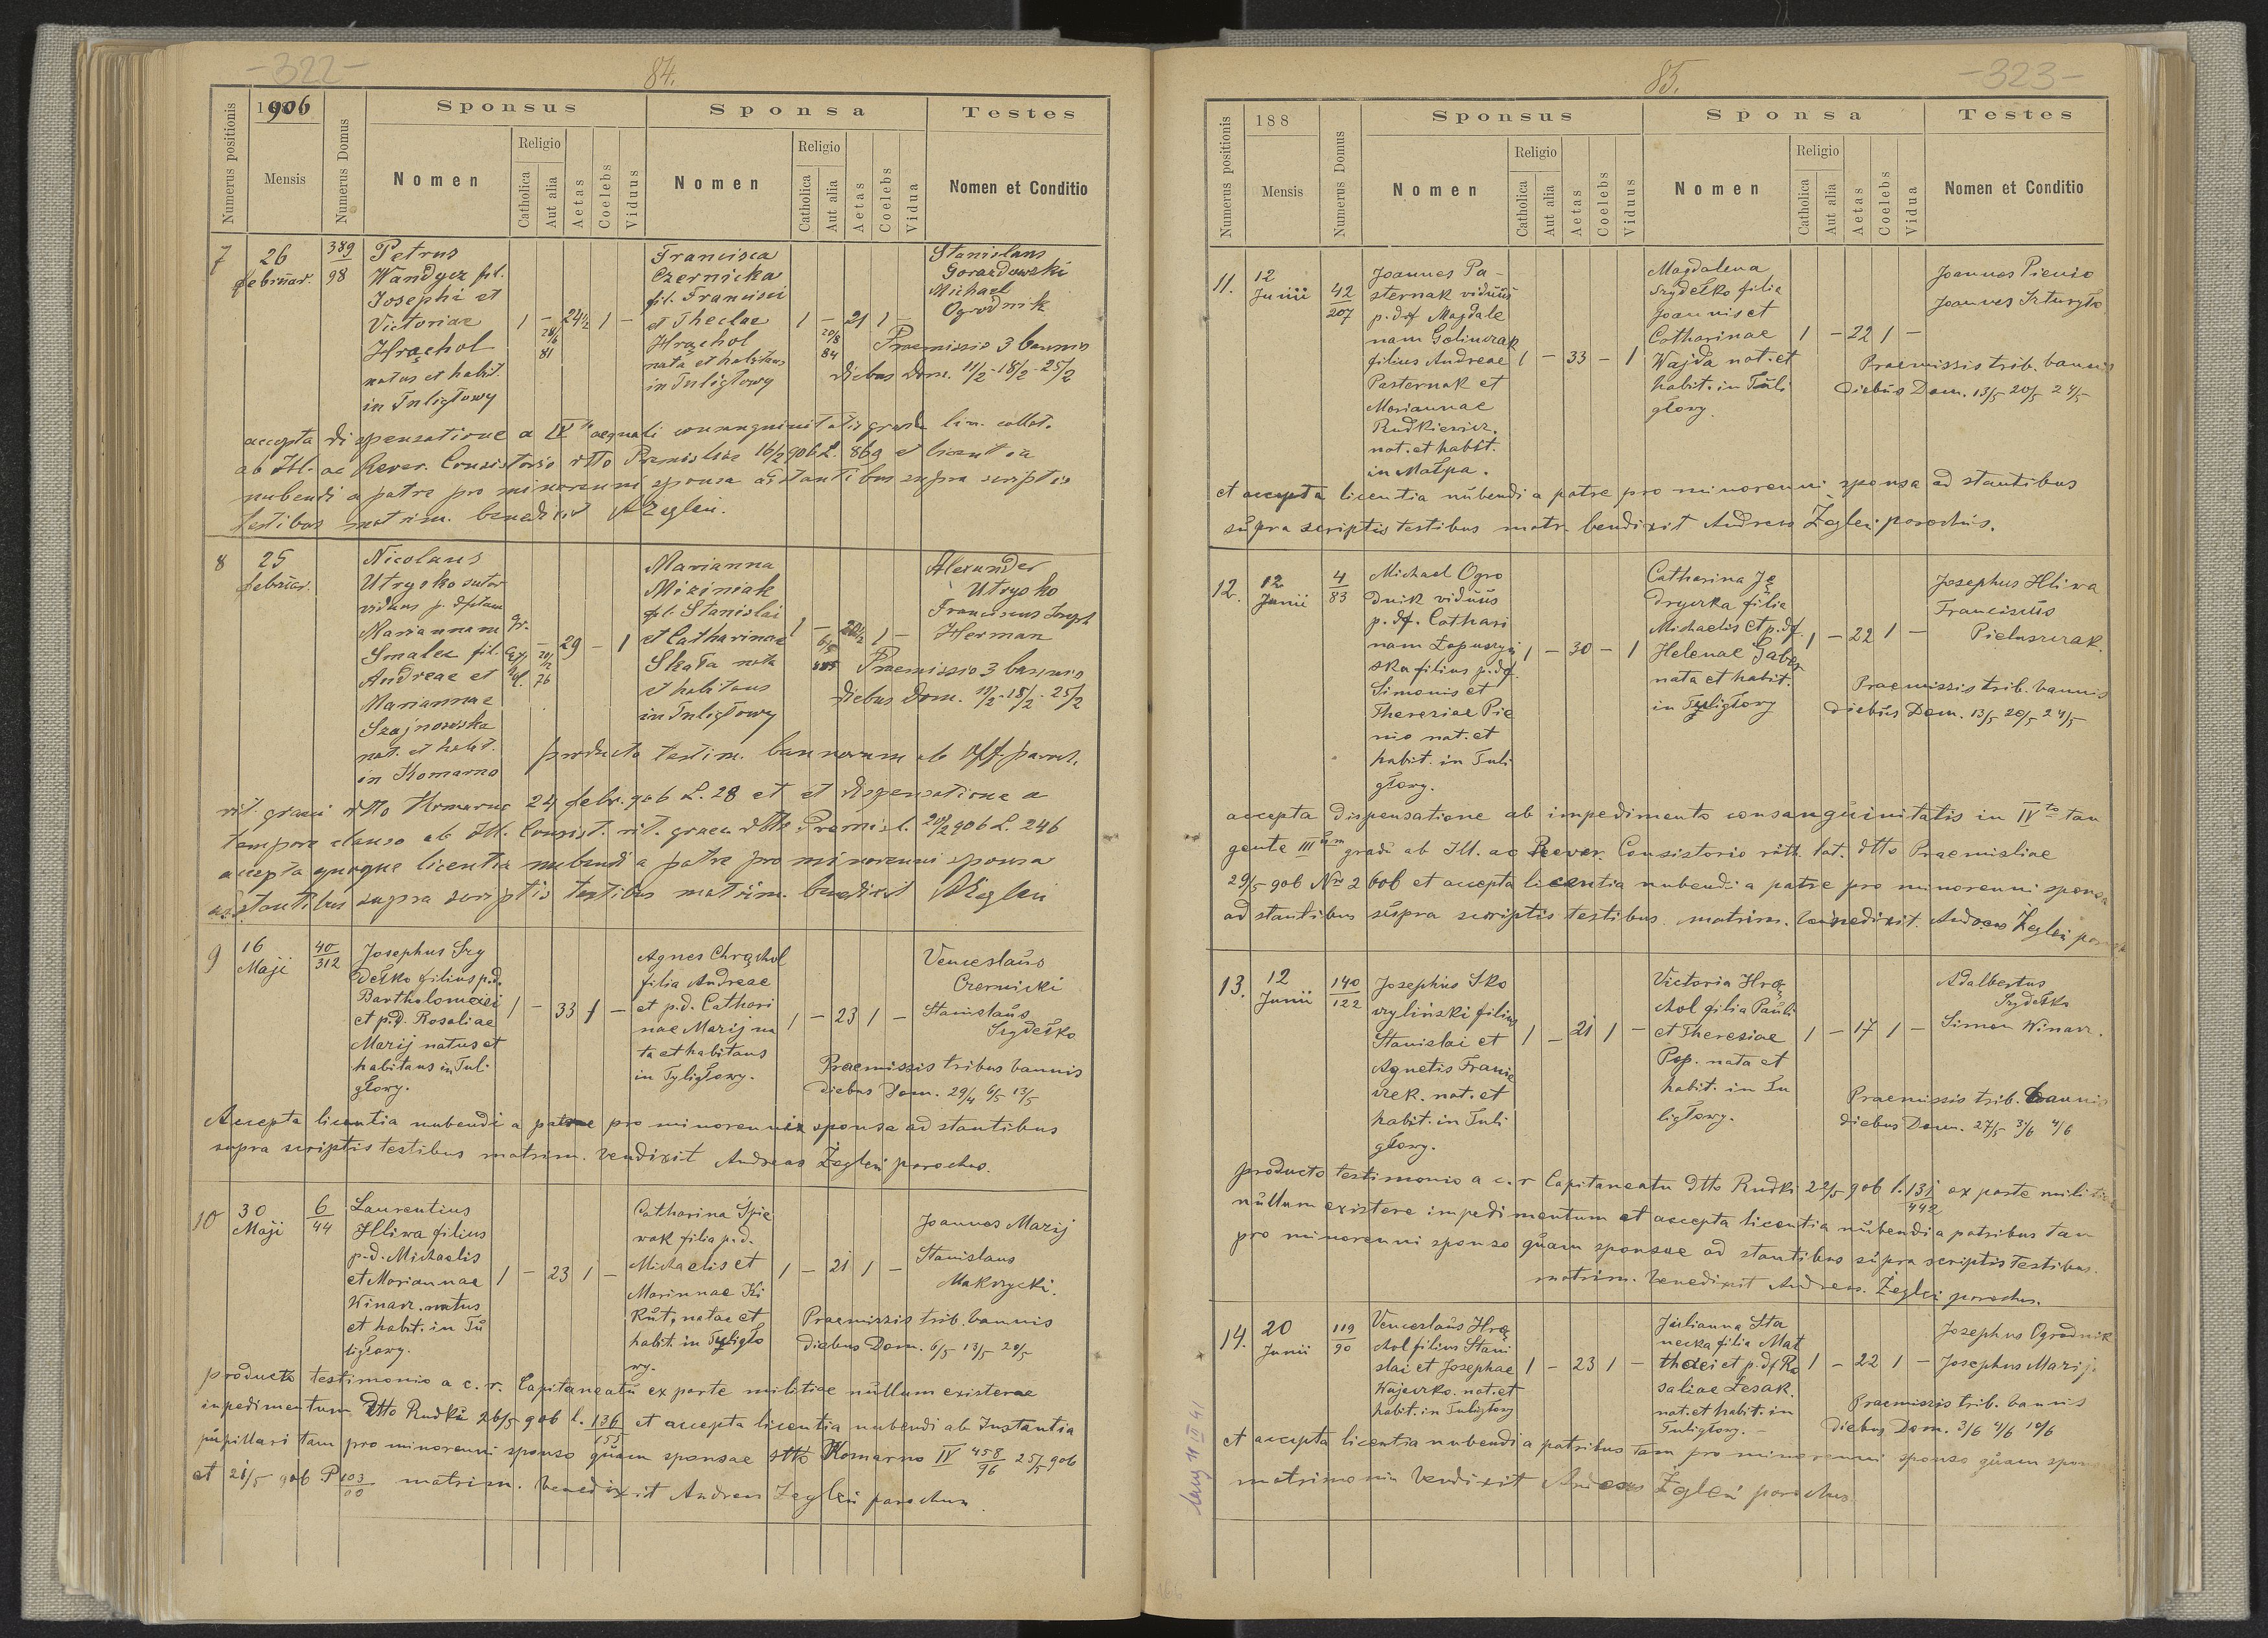 -322-
84.
1 906
Numerus positionis
Mensis
Numerus Domus
Sponsus
Sponsa
Testes
Nomen
Religio
Catholica
Aut alia
Aetas
Coelebs
Viduus
Nomen
Religio
Catholica
Aut alia
Aetas
Coelebs
Vidua
Nomen et Conditio
7
26
februar.
389
98
Petrus
Wandycz fil.
Josephi et
Victoriae
Hrąchol
natus et habit.
in Tuligłowy
1 - 24½ 1 -
28/6
81
Francisca
Czernicka
fil. Francisci
et Theclae
Hrąchol
nata et habitans
in Tuligłowy
1 - 21 1 -
20/8
84
Stanislaus
Gorazdowski
Michael
Ogrodnik
Praemissis 3 bannis
diebus Dom. 11/2 - 18/2 - 25/2
accepta dispensatione a IV to aequali consanguinitatis gradu lin. collat.
ab Ill. ac Rever. Consistorio dtto Premisliae 16/2 906 L. 869 et licentia
nubendi a patre pro minorenni sponsa adstantibus supra scriptis
testibus matrim. benedixit AŻegleń.
8
25
februar.
Nicolaus
Utrysko sutor
viduus p. dfctam
Mariannam
Smalec fil.
Andreae et
Mariannae
Szajnowska
nat. et habit.
in Komarno
gr.
29 - 1
20/12
76
Marianna
Miziniak
fil. Stanislai
et Catharinae
Skała nata
et habitans
in Tuligłowy
1 - 20½ 1 -
6/5
885
Alexander
Utrysko
Franciscus Joseph
Herman
Praemissis 3 bannis
diebus Dom. 11/2 - 18/2 - 25/2
producto testim. bannorum ab Off. paroch.
rit. graeci dtto Komarno 24 febr. 906 L. 28 et et dispensatione a
tempore clauso ab Ill. Consist. rit. graeci dtto Premisl. 20/2 906 L. 246
accepta quoque licentia nubendi a patre pro minorenni sponsa
adstantibus supra scriptis testibus matrim. benedixit AŻegleń
9
16
Maji
40
312
Josephus Szy
dełko filius p.d.
Bartholomaei
et p.d. Rosaliae
Marij natus et
habitans in Tuli
głowy.
1 - 33 1 -
Agnes Chrąchol
filia Andreae
et p.d. Cathari
nae Marij na
ta et habitans
in Tyligłowy.
1 - 23 1 -
Venceslaus
Czernicki
Stanislaus
Szydełko
Praemissis tribus bannis
diebus Dom. 29/4 6/5 13/5
Accepta licentia nubendi a patre pro minorennis sponsa ad stantibus
supra scriptis testibus matrim. bendixit Andreas Żegleń parochus.
10
30
Maji
6
44
Laurentius
Hliwa filius
p.d. Michaelis
et Mariannae
Winarz. natus
et habit. in Tu
ligłowy.
1 - 23 1 -
Catharina Śpie
wak filia p.d.
Michaelis et
Marinnae Ki
kut, natae et
habit. in Tyligło
wy.
1 - 21 1 -
Joannes Marij
Stanislaus
Makrzycki.
Praemissis trib. bannis
diebus Dom. 6/5 13/5 20/5
producto testimonio a c. r. Capitaneatu ex parte militiae nullum existerae
inpedimentum dtto Rudki 26/5 906 l. 136/155 et accepta licentia nubendi ab Instantia
pupillari tam pro minorenni sponso quam sponsae dtto Komarno IV 458/96 25/5 906
et 21/5 906 P 103/00 matrim. benedixit Andreas Żegleń parochus.
85.
-323-
188
Numerus positionis
Mensis
Numerus Domus
Sponsus
Sponsa
Testes
Nomen
Religio
Catholica
Aut alia
Aetas
Coelebs
Viduus
Nomen
Religio
Catholica
Aut alia
Aetas
Coelebs
Vidua
Nomen et Conditio
11.
12
Junii
42
207
Joannes Pa-
sternak viduus
p. df Magdale
nam Golinczak
filius Andreae
Pasternak et
Mariannae
Rudkiewicz.
nat. et habit.
in Małpa.
1 - 33 - 1
Magdalena
Szydełko filia
Joannis et
Catharinae
Wajda nat. et
habit. in Tuli
głowy.
1 - 22 1 -
Joannes Pienio
Joannes Szturgło
Praemissis trib. bannis
diebus Dom. 13/5 20/5 24/5
et accepta licentia nubendi a patre pro minorenni sponsa ad stantibus
supra scriptis testibus matr. bendixit Andreas Żegleń parochus.
12.
12
Junii
4
83
Michael Ogro
dnik viduus
p. df. Cathari
nam Łopuszyń
ska filius p.df.
Simonis et
Theresiae Pie
nio nat. et
habit. in Tuli
głowy.
1 - 30 - 1
Catharina Ję
dryczka filia
Michaelis et p.df.
Helenae Gaber
nata et habit.
in Tyligłowy
1 - 22 1 -
Josephus Hliwa
Franciscus
Pietuszczak.
Praemissis trib. bannis
diebus Dom. 13/5 20/5 24/5
accepta dispensatione ab impedimento consanguinitatis in IV to tan
gente III um gradu ab Ill. ac Reever. Consistorio ritt. lat. dtto Praemisliae
29/5 906 Nro 2606 et accepta licentia nubendi a patre pro minorenni sponsa
ad stantibus supra scriptis testibus matrim. benedixit. Andreas Żegleń
13.
12
Junii
140
122
Josephus Sko
czyliński filius
Stanislai et
Agnetis Franie
czek. nat. et
habit. in Tuli
głowy.
1 - 21 1 -
Victoria Hrą
chol filia Pauli
et Theresiae
Pop. nata et
habit. in Tu
ligłowy.
1 - 17 1 -
Adalbertus
Szydełko
Simon Winarz.
Praemissis trib. bannis
diebus Dom. 27/5 3/6 4/6
producto testimonio a c. r Capitaneatu dtto Rudki 22/5 906 l. 131/442 ex parte militiae
nullum existere impedimentum et accepta licentia nubendi a patribus tam
pro minorenni sponso quam sponsae ad stantibus supra scriptis testibus.
matrim. benedixit Andreas. Żegleń parochus.
14.
20
Junii
119
90
Venceslaus Hrą
chol filius Stani
slai et Josephae
Wajeczko. nat. et
habit. in Tuligłowy
1 - 23 1 -
Julianna Sta
necka filia Mat
thaei et p. df Ro
saliae Lesak.
nat. et habit. in
Tuligłowy. -
1 - 22 1 -
Josephus Ogrodnik
Josephus Marij.
Praemissis trib. bannis
diebus Dom. 3/6 4/6 10/6
et accepta licentia nubendi a patribus tam pro minorenni sponso quam
matrimonium bendixit Andreas Żegleń parochus
166